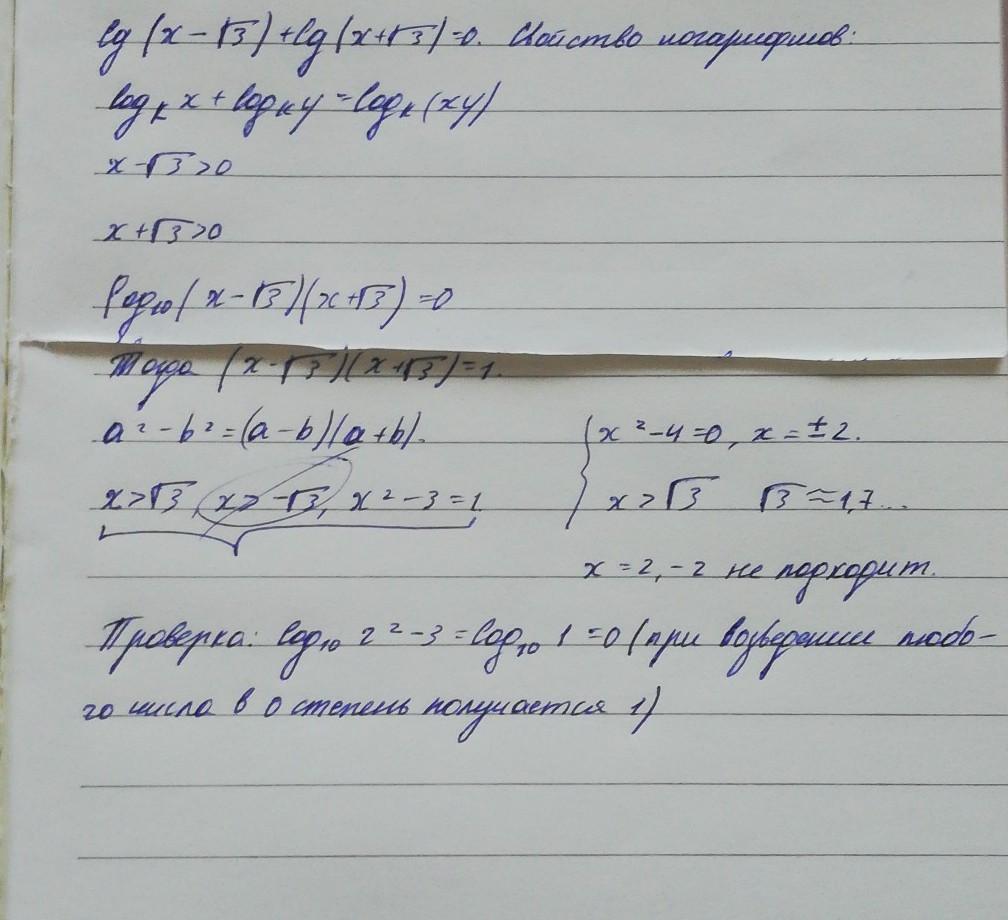 lg(x-√3)+lg(x+√3)=0. Свойство логарифмов:
logₖ x + logₖ y = logₖ (xy)
x-√3>0
x+√3>0
log₁₀(x-√3)(x+√3)=0
Тогда (x-√3)(x+√3)=1.
a²-b²=(a-b)(a+b).
x>√3, x>-√3, x²-3=1
{ x²-4=0, x=±2.
x>√3 √3≈1,7...
x=2, -2 не подходит.
Проверка: log₁₀ 2²-3=log₁₀ 1=0 (при возведении любо-
го числа в 0 степень получается 1)